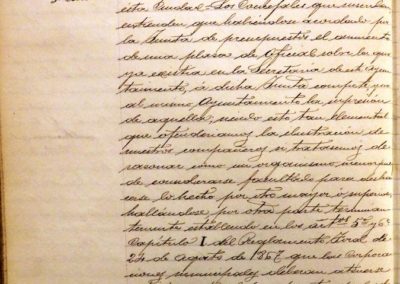 esta Ciudad. Los Concejales que suscriben
entienden que habiéndose acordado por
la Junta de presupuestos el aumento
de una plaza de oficial, sobre las que
ya existia en la Secretaria de este ayun
tamiento, á dicha Junta compete y no
al mismo Ayuntamiento la supresión
de aquella; siendo esto tan elemental
que ofenderiamos la ilustración de
nuestros compañeros si tratasemos de
razonar como un organismo incapaz
de considerarse facultado para desha
cerse lo hecho por otro mayor ó superior,
hallandose por otra parte terminan
temente establecido en los artos 5º y 6º
Capítulo I. del Reglamento Gral de
24 de agosto de 1867 que las Corpora
ciones municipales deberan atenerse